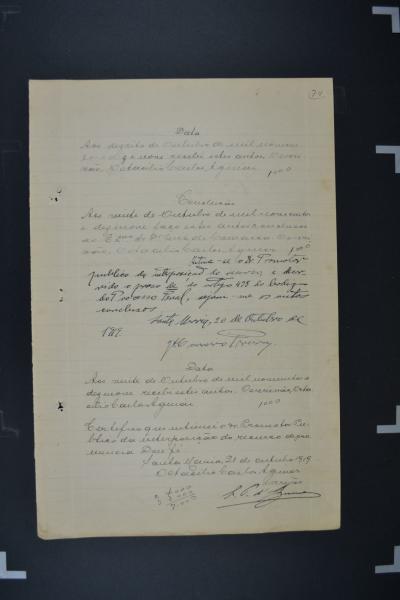 74
Data
Aos dezoito de Outubro de mil novecen
tos e dezenove recebi estes autos. O escri
vão, Octacilio Carlos Aguiar
1000
Conclusão
Aos vinte de Outubro de mil novecentos
e dezenove faço estes autos conclusos
ao Dr. Juiz da Comarca. O es
crivão, Octacilio Carlos Aguiar 1000
Intime-se o Dr. Promotor
publico da interposição do recurso e
o prazo do artigo 475 do Codigo
do Processo Penal, sejam-me os autos
conclusos.
Santa Maria, 20 de Outubro de
1919.
Data
Aos vinte de Outubro de mil novecentos e
dezenove recebi estes autos. O escrivão, Octa
cilio Carlos Aguiar 1000
Certifico que intimei o Dr. Promotor Pu
blico da interposição do recurso de pro
nuncia. Dou fé.
Santa Maria, 21 de outubro 1919
Octacilio Carlos Aguiar
Escrivão